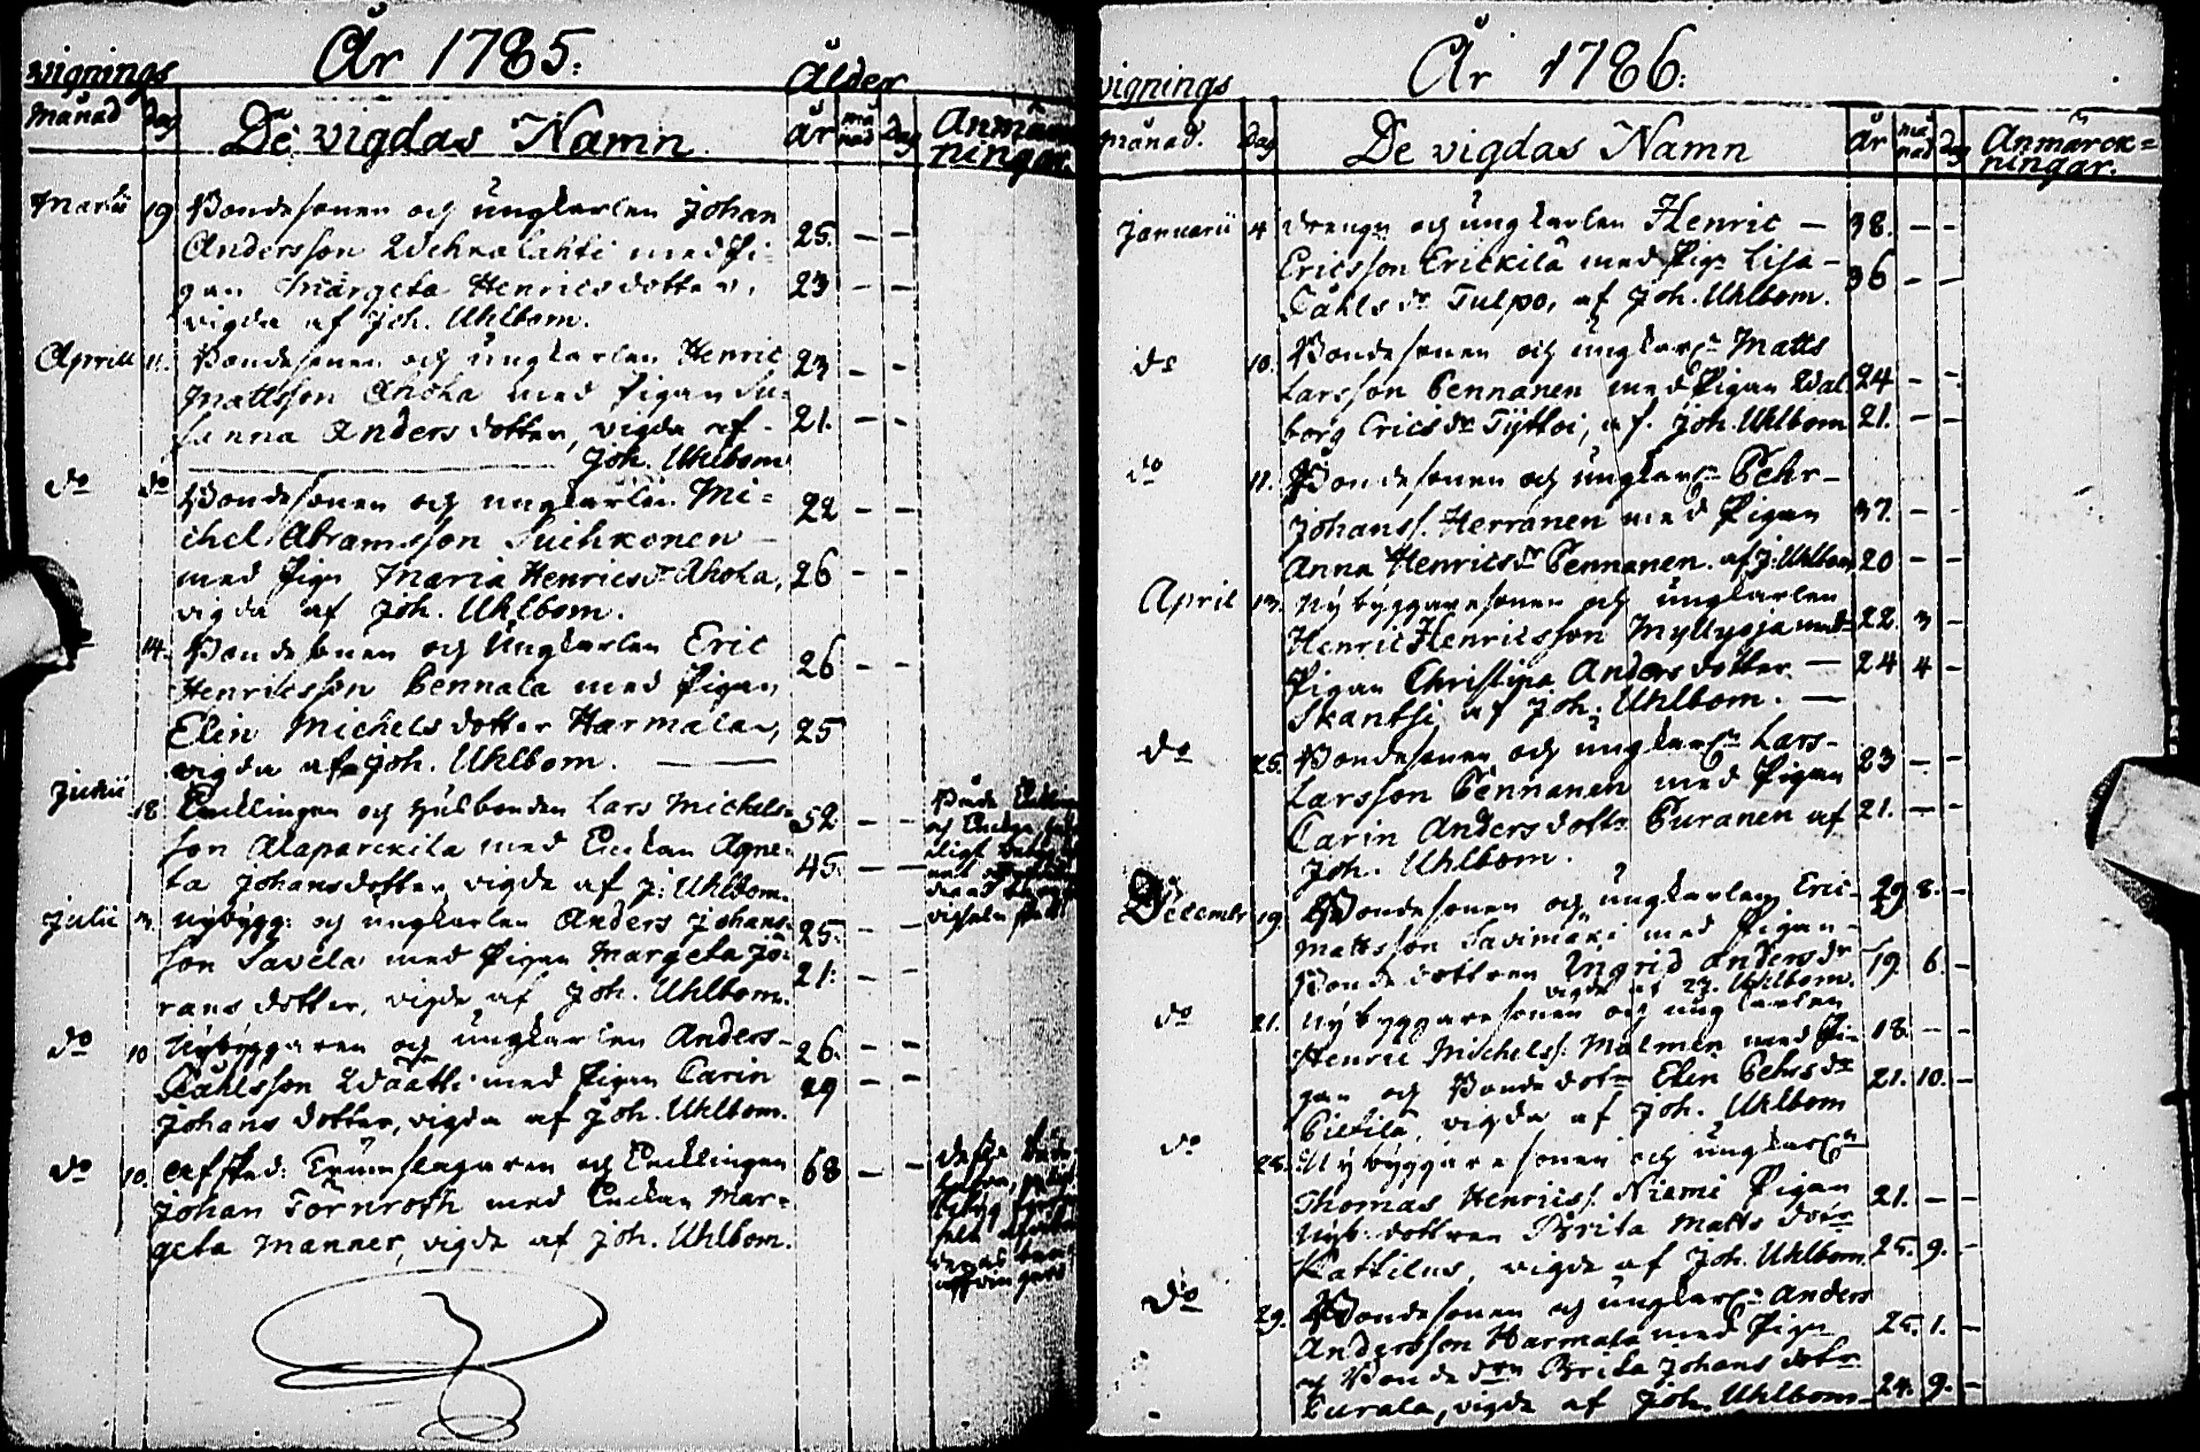 År 1785.
vignings
Månad dag De vigdas Namn. Ålder
år månad dag Anmärckningar.
Martii 19 Bondesonen och ungkarlen Johan
Andersson Wehkalahti med Pi- 25. — —
gan Margeta Henricsdotter, 23 — —
vigda af Joh. Uhlbom.
Aprill 11. Bondesonen och ungkarlen Henric 23 — —
Mattsson Ahola med Pigan Su-
sanna Andersdotter, vigda af 21. — —
Joh. Uhlbom
do do Bondesonen och ungkarlen Mi= 22 — —
chel Abramsson Suihkonen —
med Pign Maria Henricsdr Ahola, 26 — —
vigda af Joh. Uhlbom.
14. Bondesonen och Ungkarlen Eric 26 — —
Henricsson Pennala med Pigan
Elin Michelsdotter Harmala, 25
vigda af Joh. Uhlbom. —
Junii 12 Encklingen och husbonden Lars Michels= 52 — —
son Alaparckila med Enckan Agne= 45. — —
ta Johansdotter vigda af J: Uhlbom.
Julii 3. nybygg: och ungkarlen Anders Johans= 25. — —
son Savela med Pigan Margeta Jö= 21. — —
ransdotter, vigda af Joh. Uhlbom.
do 10 Nybyggaren och ungkarlen Anders- 26. — —
Påhlsson Waatti med Pigan Carin 29 — —
Johansdotter, vigda af Joh. Uhlbom.
do 10. afsked: Trumslagaren och Encklingen 68 — —
Johan Törnroth med Enckan Mar=
geta Manner, vigda af Joh. Uhlbom.
År 1786.
vignings
månad. Dag De vigdas Namn År månad dag Anmärck=
ningar.
Januarii 4 drengn och ungkarlen Henric — 38. — —
Ericsson Erickilä med Pign Lisa — 36 — —
Påhlsdr Tulpo, af Joh. Uhlbom.
do 10. Bondesonen och ungkarln Matts
Larsson Pennanen med Pigan Wal 24 — —
borg Ericsdr Tyttoi, af. Joh. Uhlbom 21. — —
do 11. Bondesonen och ungkarln Pehr —
Johanss. Herranen med Pigan 37. — —
Anna Henricsdr Pennanen. af J: Uhlbom 20 — —
April 13. Nybyggaresonen och ungkarlen
Henric Henricsson Myllyoja med 22. 3 —
Pigan Christina Andersdotter — 24 4 —
Skantsi af Joh: Uhlbom. —
do 25. Bondesonen och ungkarln Lars — 23 — —
Larsson Pennanen med Pigan
Carin Andersdottr Puranen af 21. — —
Joh. Uhlbom.
December 19. Bondesonen och ungkarlen Eric 29 8. —
Mattsson Savimäki med Pigan —
Bondedottren Ingrid Andersdr 19. 6. —
vigda af J. Uhlbom.
do 21. Nybyggaresonen och ungkarlen
Henric Michelss. Malmen med Pi= 18. — —
gan och Bondedotr Elin Pehrsdr 21. 10. —
Pietilä, vigda af Joh. Uhlbom
do 28. Nybyggaresonen och ungkarln
Thomas Henricss. Niemi Pigan 21. — —
Nyb: dottren Brita Matts dotr 25. 9. —
Kattilus, vigda af Joh. Uhlbom.
do 29. Bondesonen och ungkarln Anders
Andersson Harmala med Pign 25. 1. —
och Bondedrn Brita Johans dotr
Purala, vigda af Joh. Uhlbom 24. 9. —